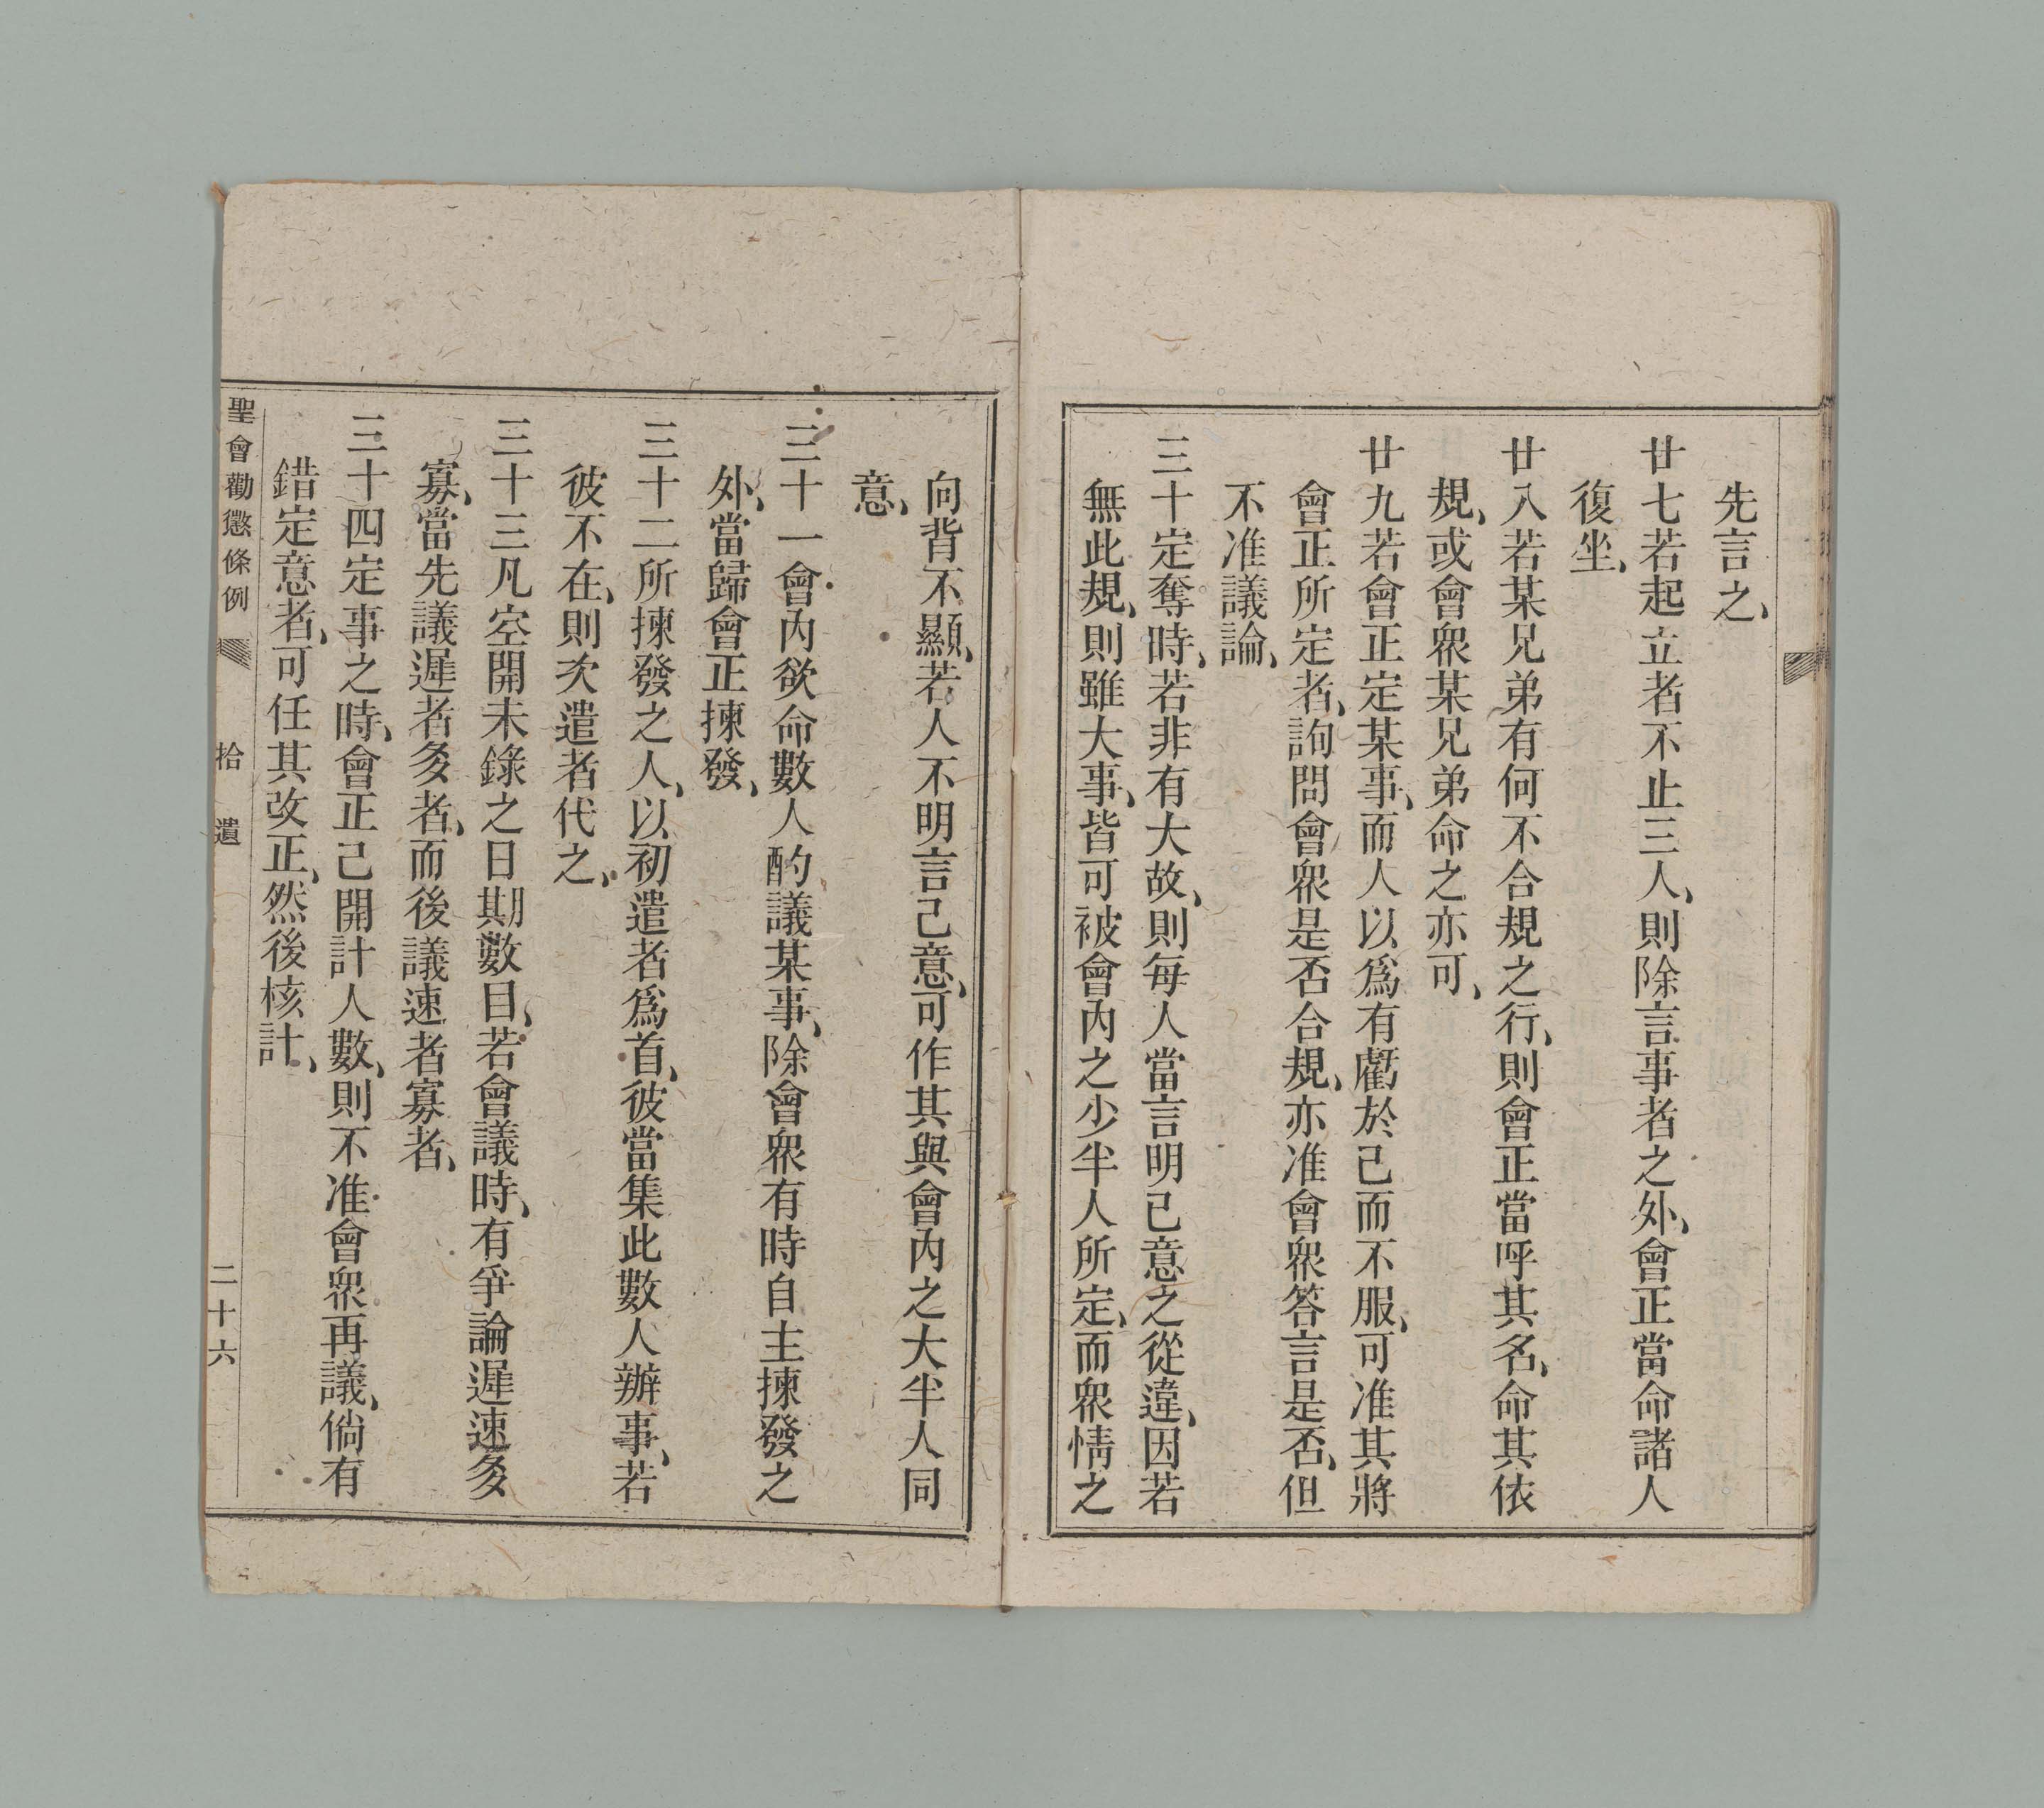 先言之、
廿七若起立者不止三人、則除言事者之外、會正當命諸人
復坐、
廿八若某兄弟有何不合規之行、則會正當呼其名、命其依
規、或會衆某兄弟命之亦可、
廿九若會正定某事、而人以爲有虧於己而不服、可准其將
會正所定者、詢問會衆是否合規、亦准會衆答言是否、但
不准議論、
三十定奪時、若非有大故、則每人當言明己意之從違、因若
無此規、則雖大事、皆可被會內之少半人所定、而衆情之
向背不顯、若人不明言己意、可作其與會內之大半人同
意、
三十一會內欲命數人酌議某事、除會衆有時自主揀發之
外、當歸會正揀發、
三十二所揀發之人、以初遣者爲首、彼當集此數人辦事、若
彼不在、則次遣者代之、
三十三凡空開未錄之日期數目、若會議時、有爭論遲速多
寡、當先議遲者多者、而後議速者寡者、
三十四定事之時、會正已開計人數、則不准會衆再議、倘有
錯定意者、可任其改正、然後核計、
聖會勸懲條例 拾遺 二十六